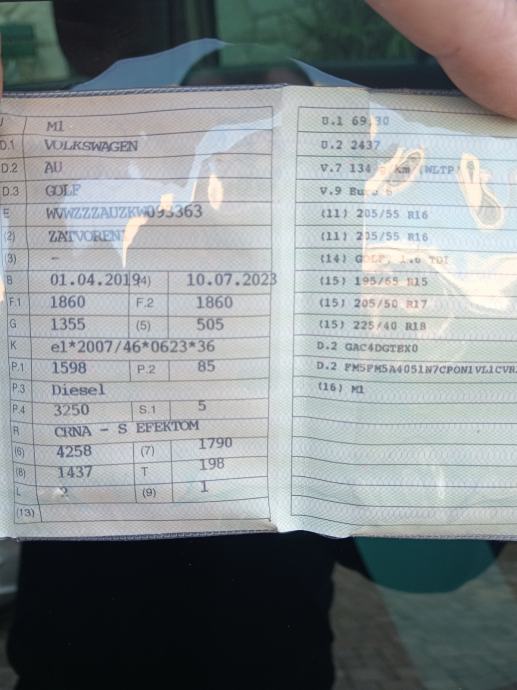 J M1
D.1 VOLKSWAGEN
D.2 AU
D.3 GOLF
E WVWZZZAUZKW093363
(2) ZATVOREN
(3) -
B 01.04.2019 (4) 10.07.2023
F.1 1860 F.2 1860
G 1355 (5) 505
K e1*2007/46*0623*36
P.1 1598 P.2 85
P.3 Diesel
P.4 3250 S.1 5
R CRNA - S EFEKTOM
(6) 4258 (7) 1790
(8) 1437 T 198
L 2 (9) 1
(13)
U.1 69,30
U.2 2437
V.7 134 km (WLTP)
V.9 Euro 6
(11) 205/55 R16
(11) 205/55 R16
(14) GOLF, 1.6 TDI
(15) 195/65 R15
(15) 205/50 R17
(15) 225/40 R18
D.2 GAC4DGTEX0
D.2 FM5FM5A4051N7CPON1VL1CVR
(16) M1